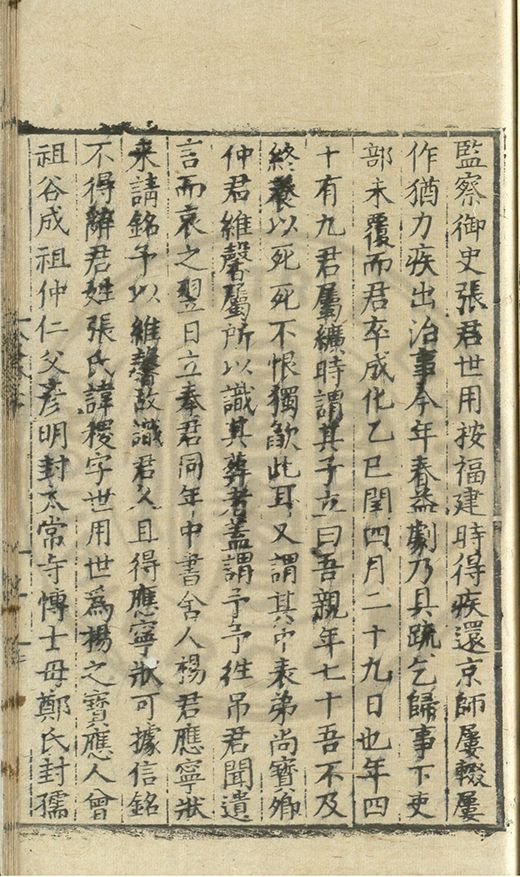 監察御史張君世用按福建時得疾還京師屢輟屢
作猶力疾出治事今年春益劇乃具疏乞歸事下吏
部未覆而君卒成化乙巳閏四月二十九日也年四
十有九君屬纊時謂其子立曰吾親年七十吾不及
終養以死死不恨獨歉此耳又謂其中表弟尚寶卿
仲君維馨屬所以識其葬者蓋謂予予往吊君聞遺
言而哀之翌日立奉君同年中書舍人楊君應寧狀
来請銘予以維馨故識君久且得應寧狀可據信銘
不得辭君姓張氏諱稷字世用世爲揚之寶應人曾
祖谷成祖仲仁父彥明封太常寺博士母鄭氏封孺